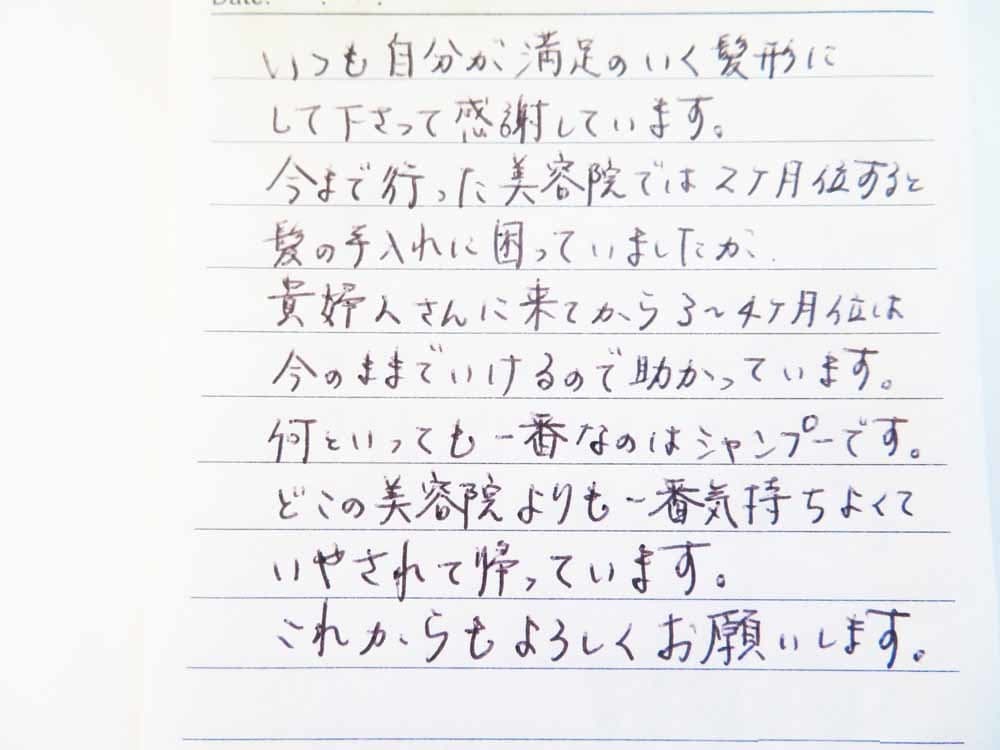 Date:　.　.
いつも自分が満足のいく髪形に
して下さって感謝しています。
今まで行った美容院では2ケ月位すると
髪の手入れに困っていましたが、
貴婦人さんに来てから3～4ケ月位は
今のままでいけるので助かっています。
何といっても一番なのはシャンプーです。
どこの美容院よりも一番気持ちよくて
いやされて帰っています。
これからもよろしくお願いします。